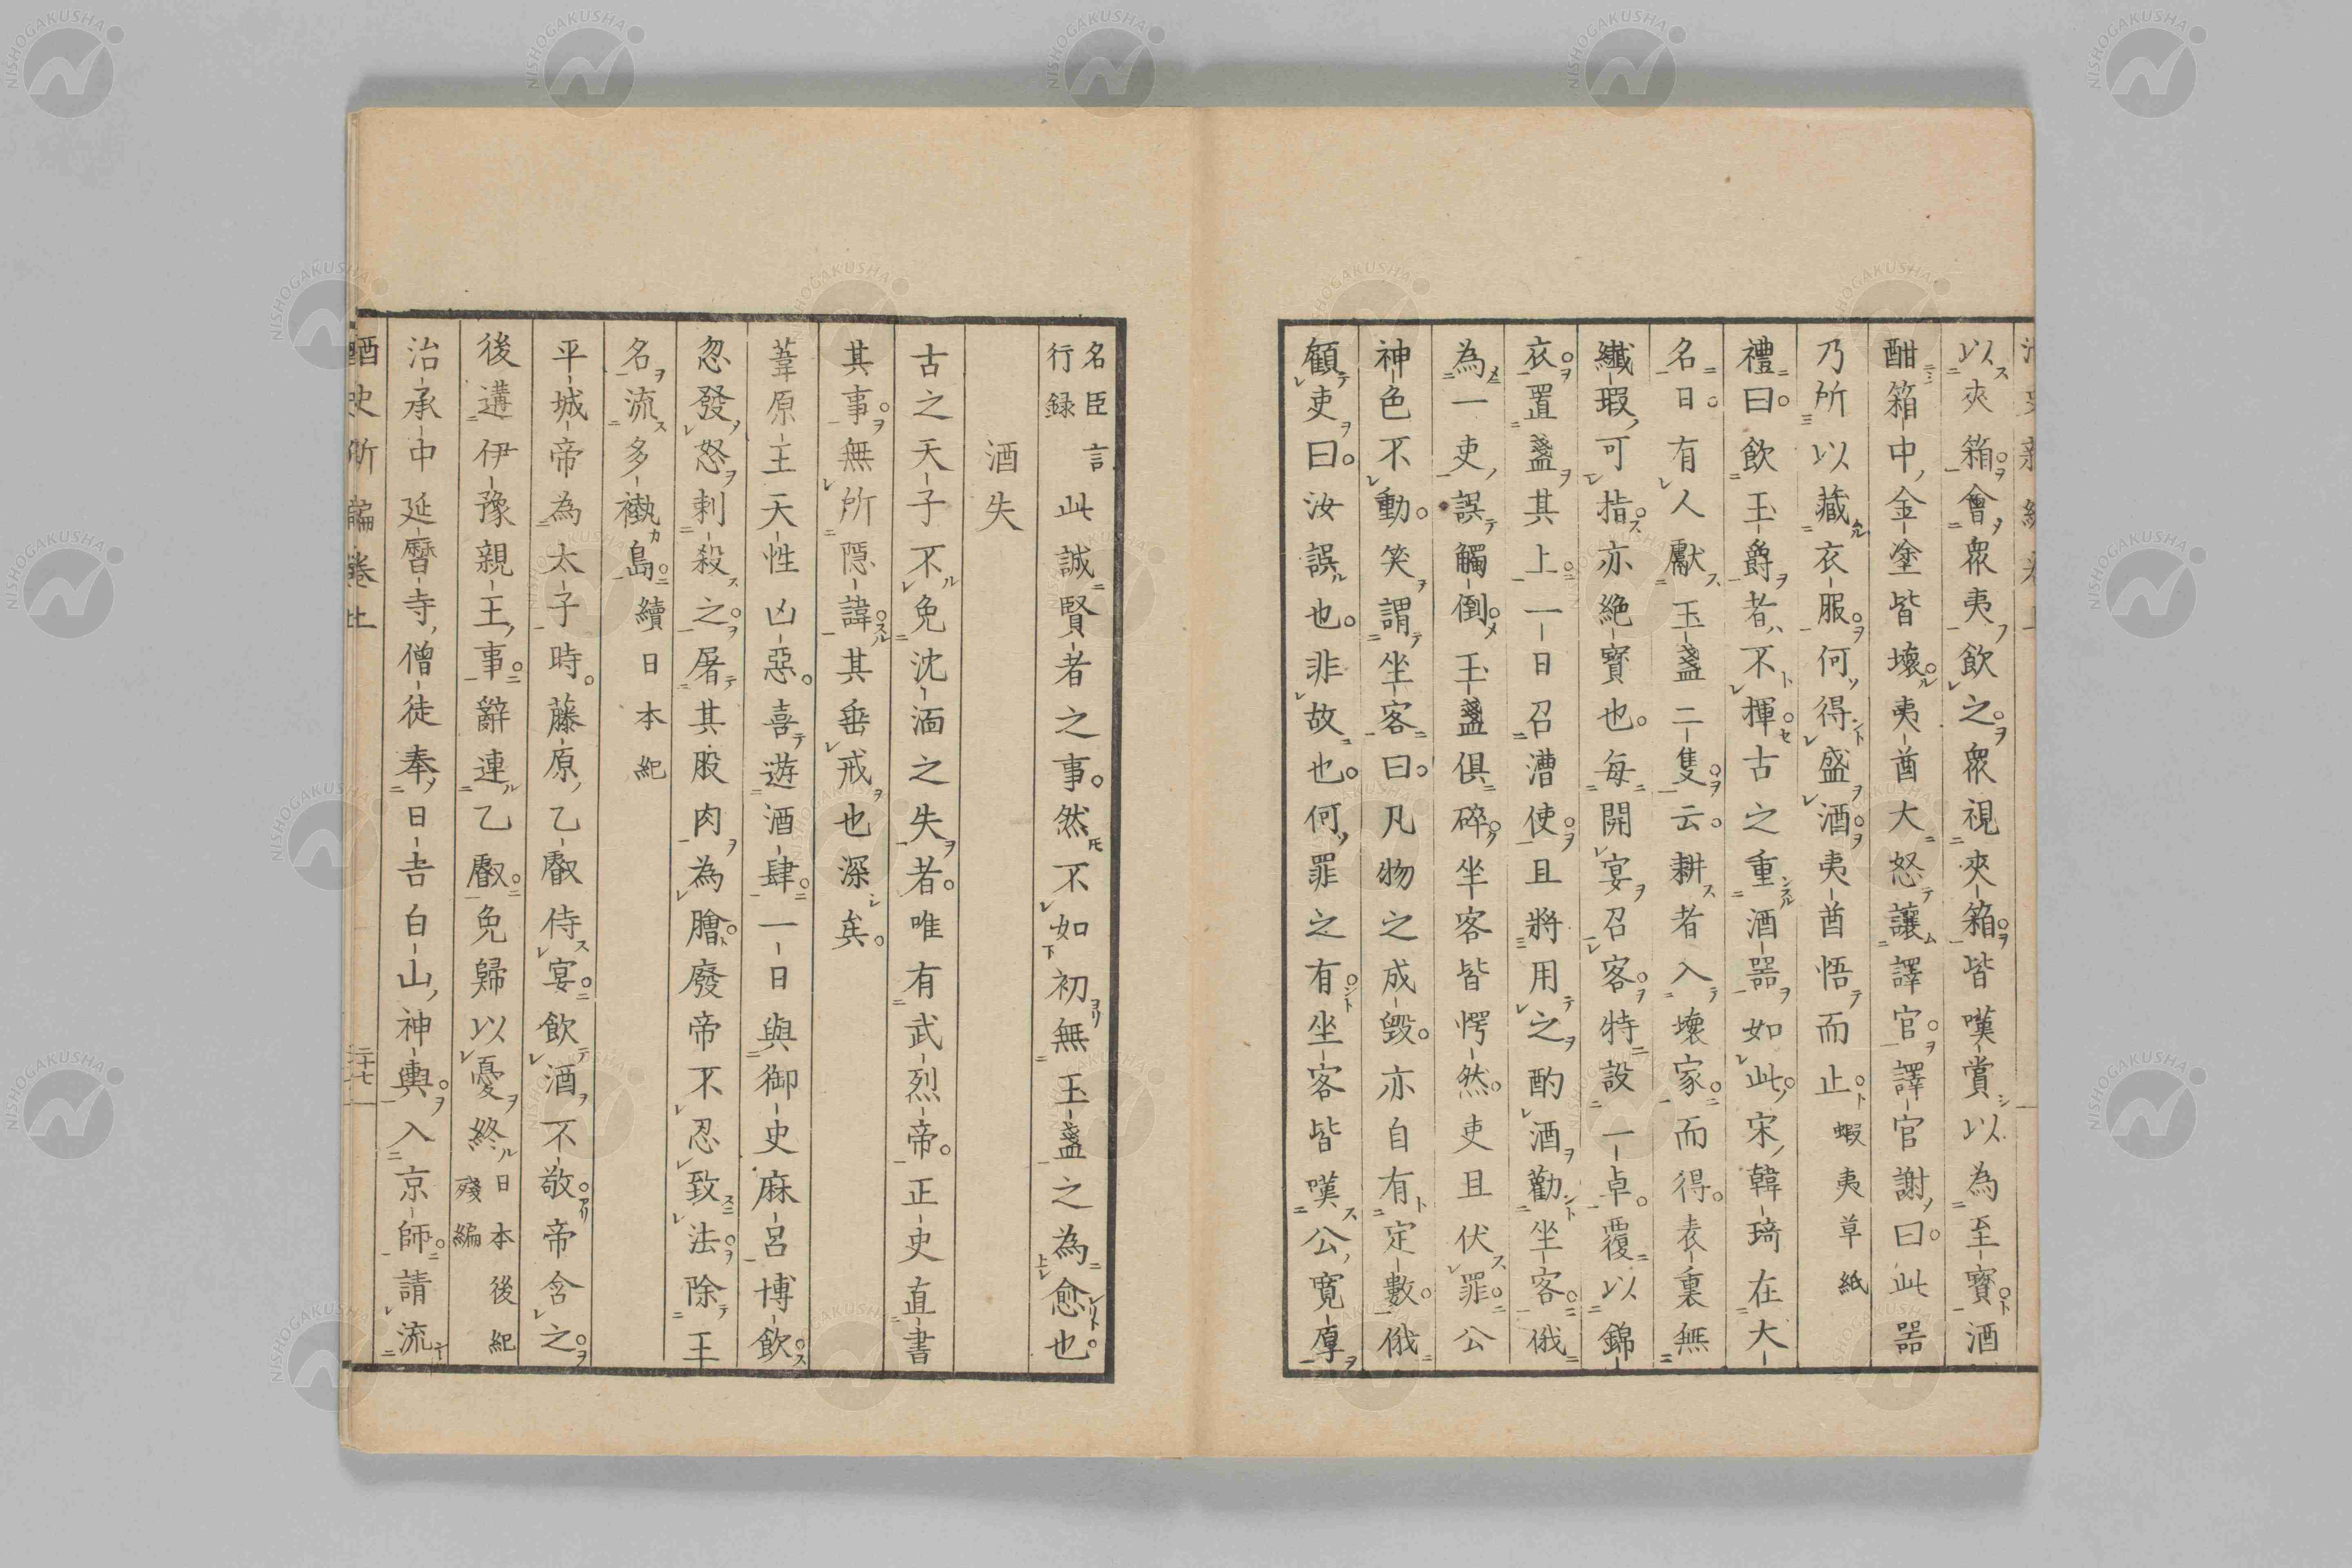 以夾箱會衆夷飲之衆視夾箱皆嘆賞以為至寶酒
酣箱中金塗皆壞夷酋大怒讓譯官譯官謝曰此器
乃所以藏衣服何得盛酒夷酋悟而止蝦夷草紙
禮曰飲玉爵者不揮古之重酒器如此宋韓琦在大
名日有人獻玉盞二隻云耕者入壞冢而得表裏無
纎瑕可指亦絶寶也每開宴召客特設一卓覆以錦
衣置盞其上一日召漕使且將用之酌酒勸坐客俄
為一吏誤觸倒玉盞俱碎坐客皆愕然吏且伏罪公
神色不動笑謂坐客曰凡物之成毀亦自有定數俄
顧吏曰汝誤也非故也何罪之有坐客皆嘆公寛厚
名臣言行録此誠賢者之事然不如初無玉盞之為愈也
酒失
古之天子不免沈湎之失者唯有武烈帝正史直書
其事無所隱諱其垂戒也深矣
葦原王天性凶惡喜遊酒肆一日與御史麻呂博飲
忽發怒刺殺之屠其股肉為膾廢帝不忍致法除王
名流多褹島續日本紀
平城帝為太子時藤原乙叡侍宴飲酒不敬帝含之
後遘伊豫親王事辭連乙叡免歸以憂終日本後紀殘編
治承中延曆寺僧徒奉日吉白山神輿入京師請流
酒史新編卷上
二十七
NISHOGAKUSHA